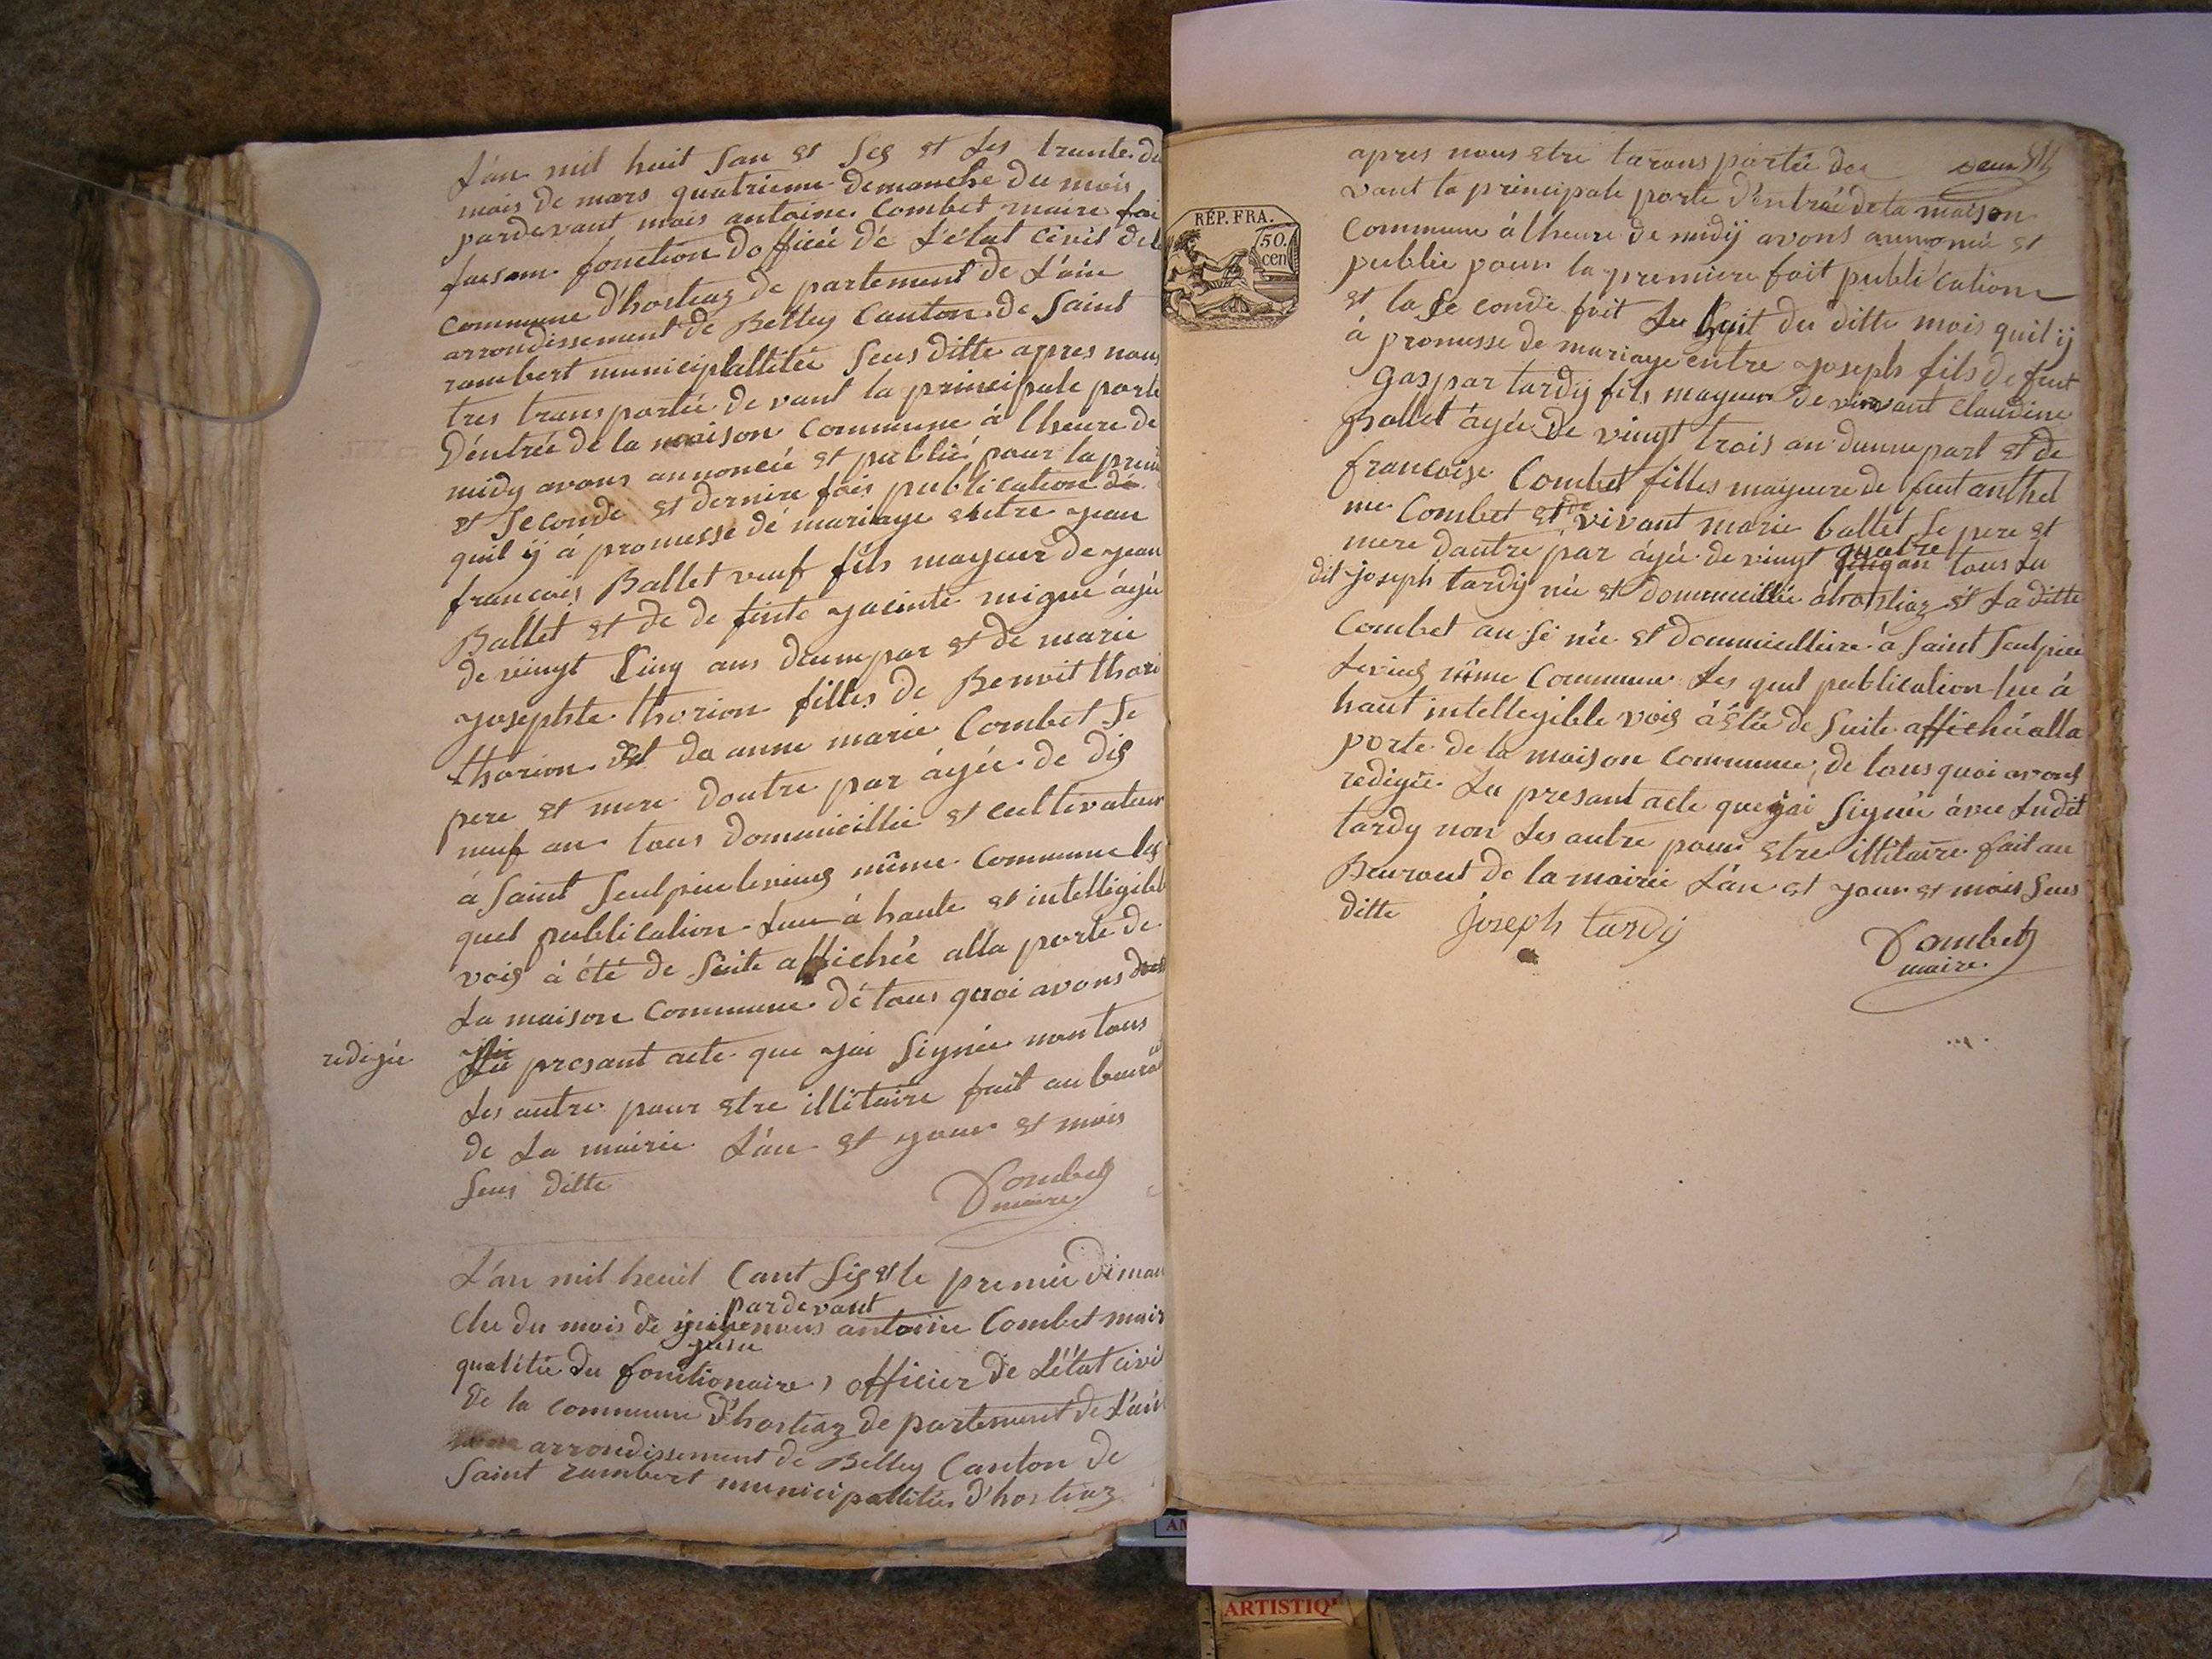 L'an mil huit san et seg et les trante du
mois de mars quatrieme demanche du mois
pardevant mois antoine Combet maire
faesam fonction doficié dé L'état civil de
Commune d'hostiaz de partement de L'ain
arrondissement de Belley Canton de Saint
rambert municiplallitée seus ditte apres nous
tres transportée de vant la principale porte
D'éntrée de la maison Commune à lheure de
midy avons annoncée et publié pour la
et Seconde et dernire fois publication dé
quil ÿ à promesse dé mariage entre yean
francois Ballet veuf fils mageur de yean
Ballet et de de finte yacinte migné âgé
de veingt Cinq ans daunepar et de marie
yosephte thorion filles de Benoit thori
thorion et de anne marie Combet Se
pere et mere doutre par âgée de dig
neuf an tous dommicillié et cultivateur
à Saint Seulpice levieug même Commune les
quel publication Lue à haute et intelligible
voig à été de Suite affichée alla porte de
La maison Commune dé tous quoi avons
redigée Le presant acte que yai Signée non tous
Les autre pour etre illétaire fait au
de La mairie L'an et your et mois
Seus ditte
Combet
maire
L'an mil heuit Cant Sig et le premié diman
pardevant
che du mois de nous antoine Combet mair
juin
qualitée du fonctionaire, officier de L'état civil
de la commune D'hostiaz de partement de L'ain
arrondissement de Belley Canton de
Saint rambert municipallitée d'hostiaz
apres nous etre tarons portée de
vant la principale porte D'éntrée de la maison
Commune à lheure de midÿ avons annoncée et
publié pour la premiere foit publication
et la Seconde foit Le huit du ditte mois quil ÿ
à promesse de mariage entre yoseph fils de feut
gaspar tardÿ fils mageur de vivant claudine
Ballet âgée de vingt trois an daune part et de
francoise Combet filles mageure de feut anthel
me Combet et de vivant marie ballet Se pere et
mere dautre par âgée de vingt quatre an tous Le
dit joseph tardÿ née et dommicillié à hostiaz et La ditte
Combet au si née et dommicilliere à Saint Seulpice
Levieug même Commune Les quel publication lue à
haut intellegible voig à étée de Suite affichée alla
porte de la maison Commune, de tous quoi avons
redigée Le presant acte que yai Signée àvec Ledit
tardy non Les autre pour etre illitaire fait au
Beuraut de la mairie L'an et your et mois Seus
ditte
joseph tardÿ
Combet
maire
RÉP. FRA.
50.
cen
ARTISTIQ